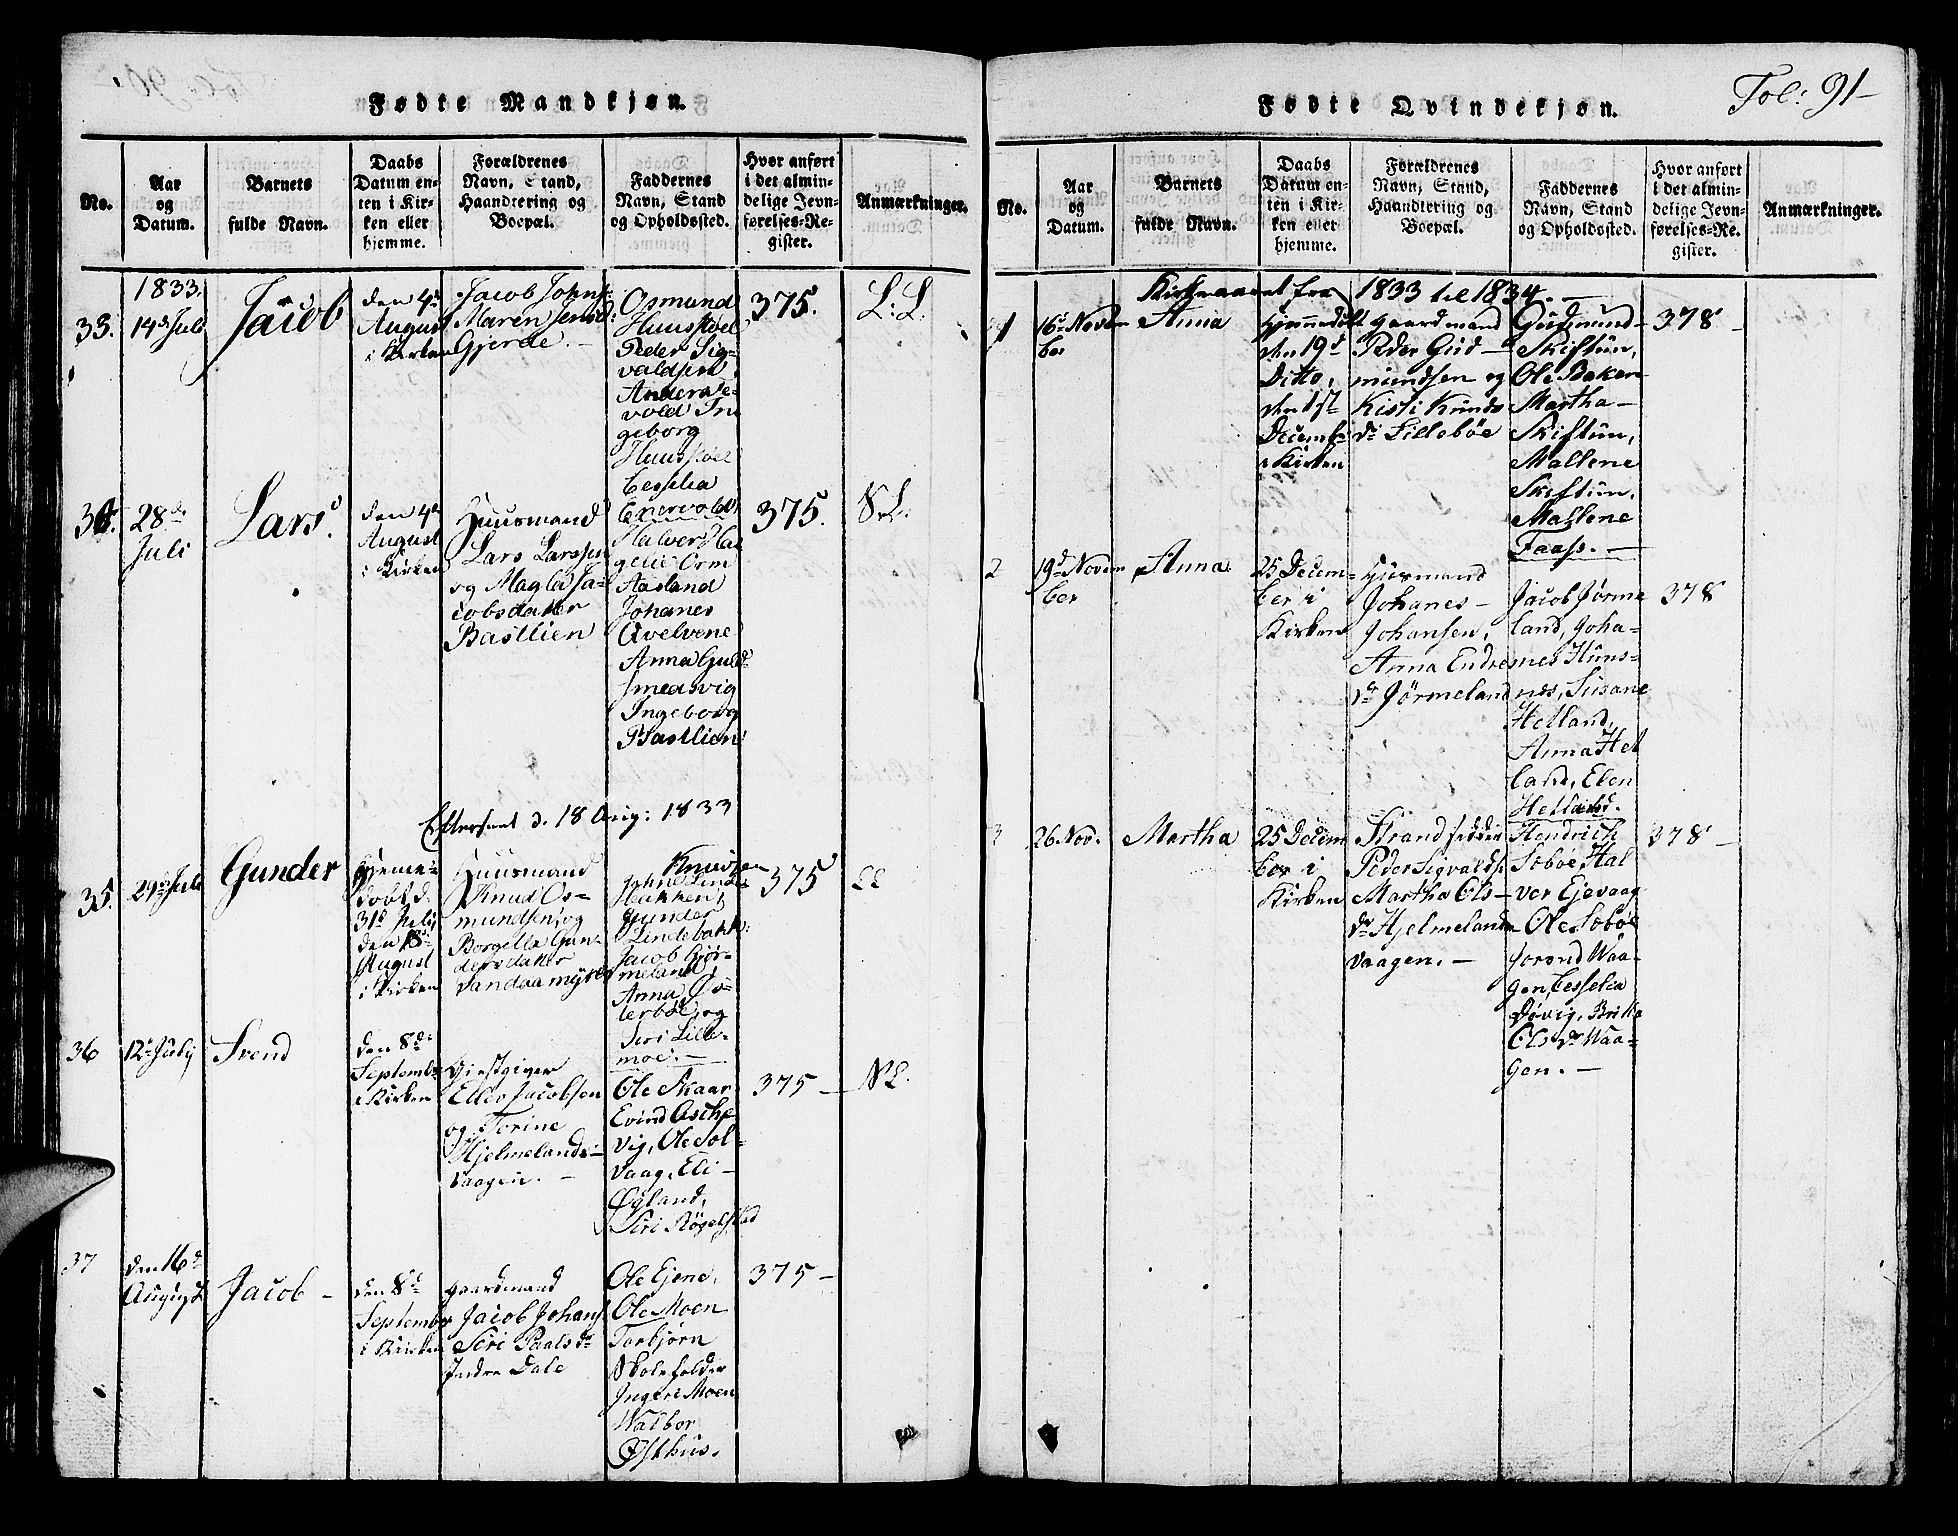 Fødte Mandkjøn.
No.
Aar
og
Datum.
Barnets
fulde Navn.
Daabs
Datum en-
ten i Kir-
ken eller
hjemme.
Forældrenes
Navn, Stand,
Haandtering og
Boepæl.
Faddernes
Navn, Stand
og Opholdssted.
Hvor anført
i det almin-
delige Jevn-
førelses-Re-
gister.
Anmærkninger.
33.
1833.
14d Juli
Jacob
den 4d
August
i Kirken
Jacob Johns:
Maren Jensd:
Gjerde.
Osmund
Huuspoel
Peder Sig-
valdsen
Anders
vold In
geborg
Huuspoel
Cesselia
375.
L.L.
34.
28de
Juli
Lars.
den 4d
August
i Kirken
Huusmand
Lars Larssen
og Magla Ja-
cobsdatter
Bastlien
Halver
gelie Orm
Aasland
Johanes
Qvelvene
Anna Guld
smedsvig
Ingeborg
Bastlien
375.
N.L.
Eftersaat d. 18 Aug: 1833
35.
29d Juli
Gunder
Hjeme-
døbt d.
31d Juli,
den 18d
August
i Kirken
Huusmand
Knud Os-
mundsen, og
Borgella Gun-
dersdatter
Sandaamyren
Knudsen
John Linde
bakken,
Gunder
Lindebakk:
Jacob Gjør-
meland,
Anna Øs-
terbøe, og
Siri Lille-
moe. -
375
LL
36
12d July
Svend
den 8de
Septemb:
i Kirken
Giestgiver
Elles Jacobsen
og Torine
Hjelmelands-
vaagen. -
Ole Skaar
Evind Aschr
vig, Ole Sol-
vaag, Eli
Øyland,
Siri Røgelstad
375 -
NL.
37
den 16d
August
Jacob -
den 8d
September
i Kirken
gaardmand
Jacob Johans
Siri Paalsdr
Indre Dale
Ole Ejene,
Ole Moen
Torbjørn
Skoleholder
Ingeri Moen
Walbor
Østhus.
375 -
Fol: 91-
Fødte Qvindekjøn.
No.
Aar
og
Datum.
Barnets
fulde Navn.
Daabs
Datum en-
ten i Kir-
ken eller
hjemme.
Forældrenes
Navn, Stand,
Haandtering og
Boepæl.
Faddernes
Navn, Stand
og Opholdssted.
Hvor anført
i det almin-
delige Jevn-
førelses-Re-
gister.
Anmærkninger.
Kirkeaaret fra 1833 til 1834. -
1
16d Novem
ber
Anna
Hjemmedøbt
den 19d
Ditto,
den 1st
Decembr
i Kirken
gaardmand
Peder Gud-
mundsen og
Kisti Knuds
dr Lillebøe
Gudmund
Skiftun,
Ole Bakken
Martha
Skiftun,
Mallene
Skiftun,
Mallene
Faass. -
378 -
2
19d Novem
ber
Anna
25 Decem-
ber i
Kirken
Huusmand
Johanes
Johansen,
Anna Endre
dr Jørmeland
Jacob Jørme
land, Joha-
nes Huns-
nes, Susane
Helland,
Anna Hel
land, Elen
Helland.
378
3
26 Nov.
Martha
25 Decem
ber i
Kirken
Strandsidder
Peder Sigvalds:
Martha Ols-
dr Hjelmelands
vaagen. -
Hendrich
Søbøe Hal
ver Ejevaag
Ole Søbøe
Waa-
gen, Cesselia
Døvig, Britta
Ols dr Waa-
gen. -
378 -